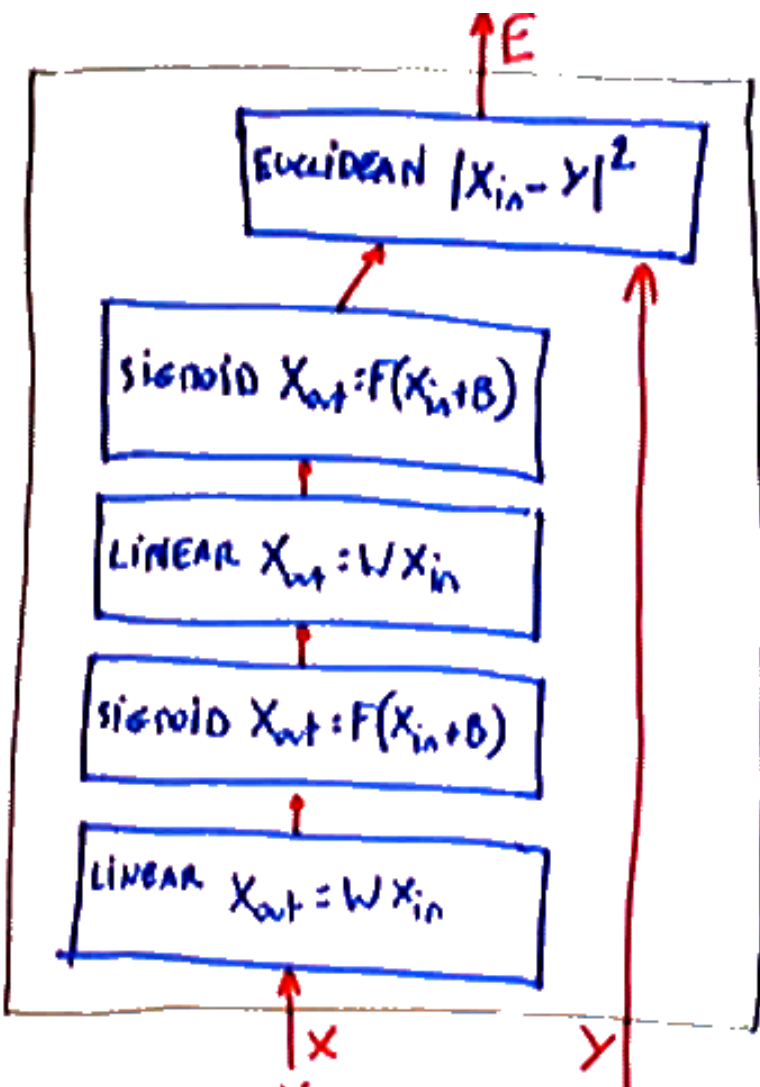 E
EUCLiDEAN |X_in - Y|²
SiGMOiD X_out = F(X_in + B)
LiNEAR X_out = W X_in
SiGMOiD X_out = F(X_in + B)
LiNEAR X_out = W X_in
X Y